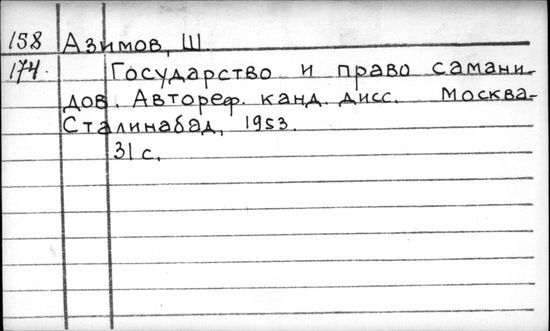 158 Азимов, Ш.
174. Государство и право самани-
дов. Автореф. канд. дисс. Москва-
Сталинабад, 1953.
31 с.